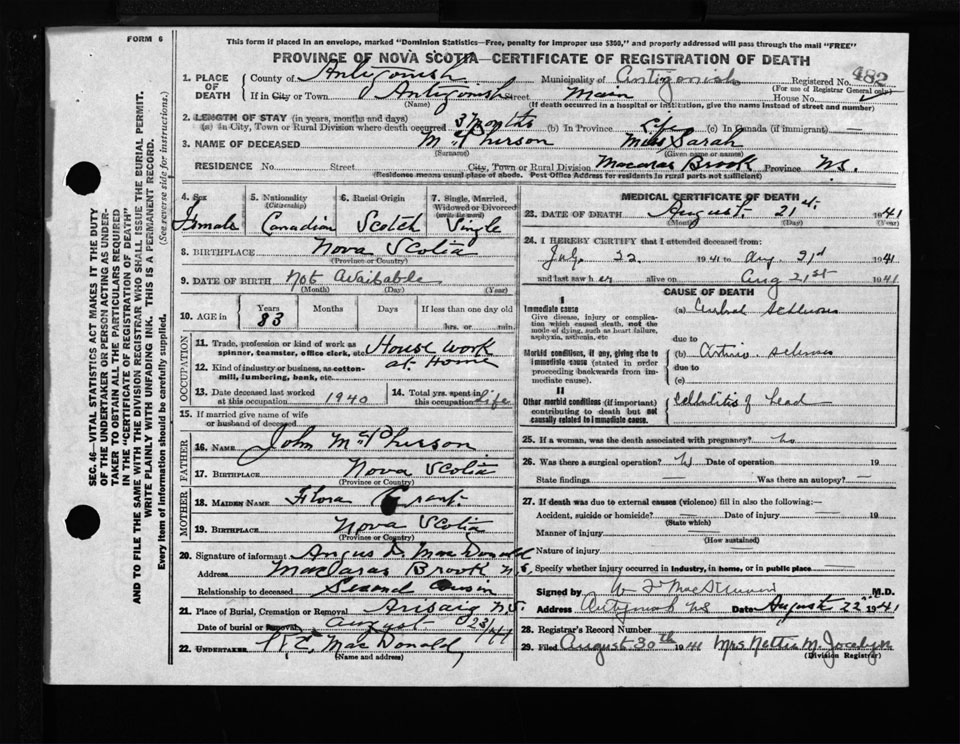 FORM 6
This form if placed in an envelope, marked "Dominion Statistics—Free, penalty for improper use $300," and properly addressed will pass through the mail "FREE"
PROVINCE OF NOVA SCOTIA—CERTIFICATE OF REGISTRATION OF DEATH
SEC. 46—VITAL STATISTICS ACT MAKES IT THE DUTY
OF THE UNDERTAKER OR PERSON ACTING AS UNDER-
TAKER TO OBTAIN ALL THE PARTICULARS REQUIRED
IN THE "CERTIFICATE OF REGISTRATION OF DEATH"
AND TO FILE THE SAME WITH THE DIVISION REGISTRAR WHO SHALL ISSUE THE BURIAL PERMIT.
WRITE PLAINLY WITH UNFADING INK. THIS IS A PERMANENT RECORD.
Every item of information should be carefully supplied. (See reverse side for instructions.)
1. PLACE OF DEATH County of Antigonish Municipality of Antigonish Registered No. 482
(For use of Registrar General only)
If in City or Town Antigonish Street Main House No.
(Name) (If death occurred in a hospital or institution, give the name instead of street and number)
2. LENGTH OF STAY (in years, months and days)
(a) in City, Town or Rural Division where death occurred 3 months (b) In Province Life (c) In Canada (if immigrant) —
3. NAME OF DECEASED McPherson Miss Sarah
(Surname) (Given name or names)
RESIDENCE No. Street City, Town or Rural Division Macaras Brook Province N.S.
(Residence means usual place of abode. Post Office Address for residents in rural parts not sufficient)
4. Sex Female
5. Nationality (Citizenship) Canadian
6. Racial Origin Scotch
7. Single, Married, Widowed or Divorced (write the word) Single
8. BIRTHPLACE Nova Scotia
(Province or Country)
9. DATE OF BIRTH Not Available
(Month) (Day) (Year)
10. AGE in Years 83 Months Days If less than one day old
hrs. or min.
OCCUPATION
11. Trade, profession or kind of work as spinner, teamster, office clerk, etc. House work
12. Kind of industry or business, as cotton-mill, lumbering, bank, etc. at Home
13. Date deceased last worked at this occupation 1940 14. Total yrs. spent in this occupation life
15. If married give name of wife or husband of deceased
FATHER
16. NAME John McPherson
17. BIRTHPLACE Nova Scotia
(Province or Country)
MOTHER
18. MAIDEN NAME Flora Grant
19. BIRTHPLACE Nova Scotia
(Province or Country)
20. Signature of informant Angus D. MacDonald
Address MacJaras Brook N.S,
Relationship to deceased Second Cousin
21. Place of Burial, Cremation or Removal Arisaig N.S.
Date of burial or Removal August 23/41
22. UNDERTAKER MacDonald,
(Name and address)
MEDICAL CERTIFICATE OF DEATH
23. DATE OF DEATH August 21st. 1941
(Month) (Day) (Year)
24. I HEREBY CERTIFY that I attended deceased from:
July 22 1941 to Aug. 21st 1941
and last saw her alive on Aug 21st 1941
CAUSE OF DEATH
I
Immediate cause
Give disease, injury or complication which caused death, not the mode of dying, such as heart failure, asphyxia, asthenia, etc
(a) Cerebral Sclerosis
due to
Morbid conditions, if any, giving rise to immediate cause (stated in order proceeding backwards from immediate cause).
(b) Arterio sclerosis
due to
(c)
II
Other morbid conditions (if important) contributing to death but not causally related to immediate cause.
Cellulitis of head
25. If a woman, was the death associated with pregnancy? No
26. Was there a surgical operation? Date of operation — 19
State findings — Was there an autopsy? —
27. If death was due to external causes (violence) fill in also the following:—
Accident, suicide or homicide? — Date of injury — 19
(State which)
Manner of injury
(How sustained)
Nature of injury
Specify whether injury occurred in industry, in home, or in public place
Signed by M.D.
Address Antigonish NS Date August 22 1941
28. Registrar's Record Number
29. Filed August 30th 1941 Mrs Nettie M. Jocelyn
(Division Registrar)